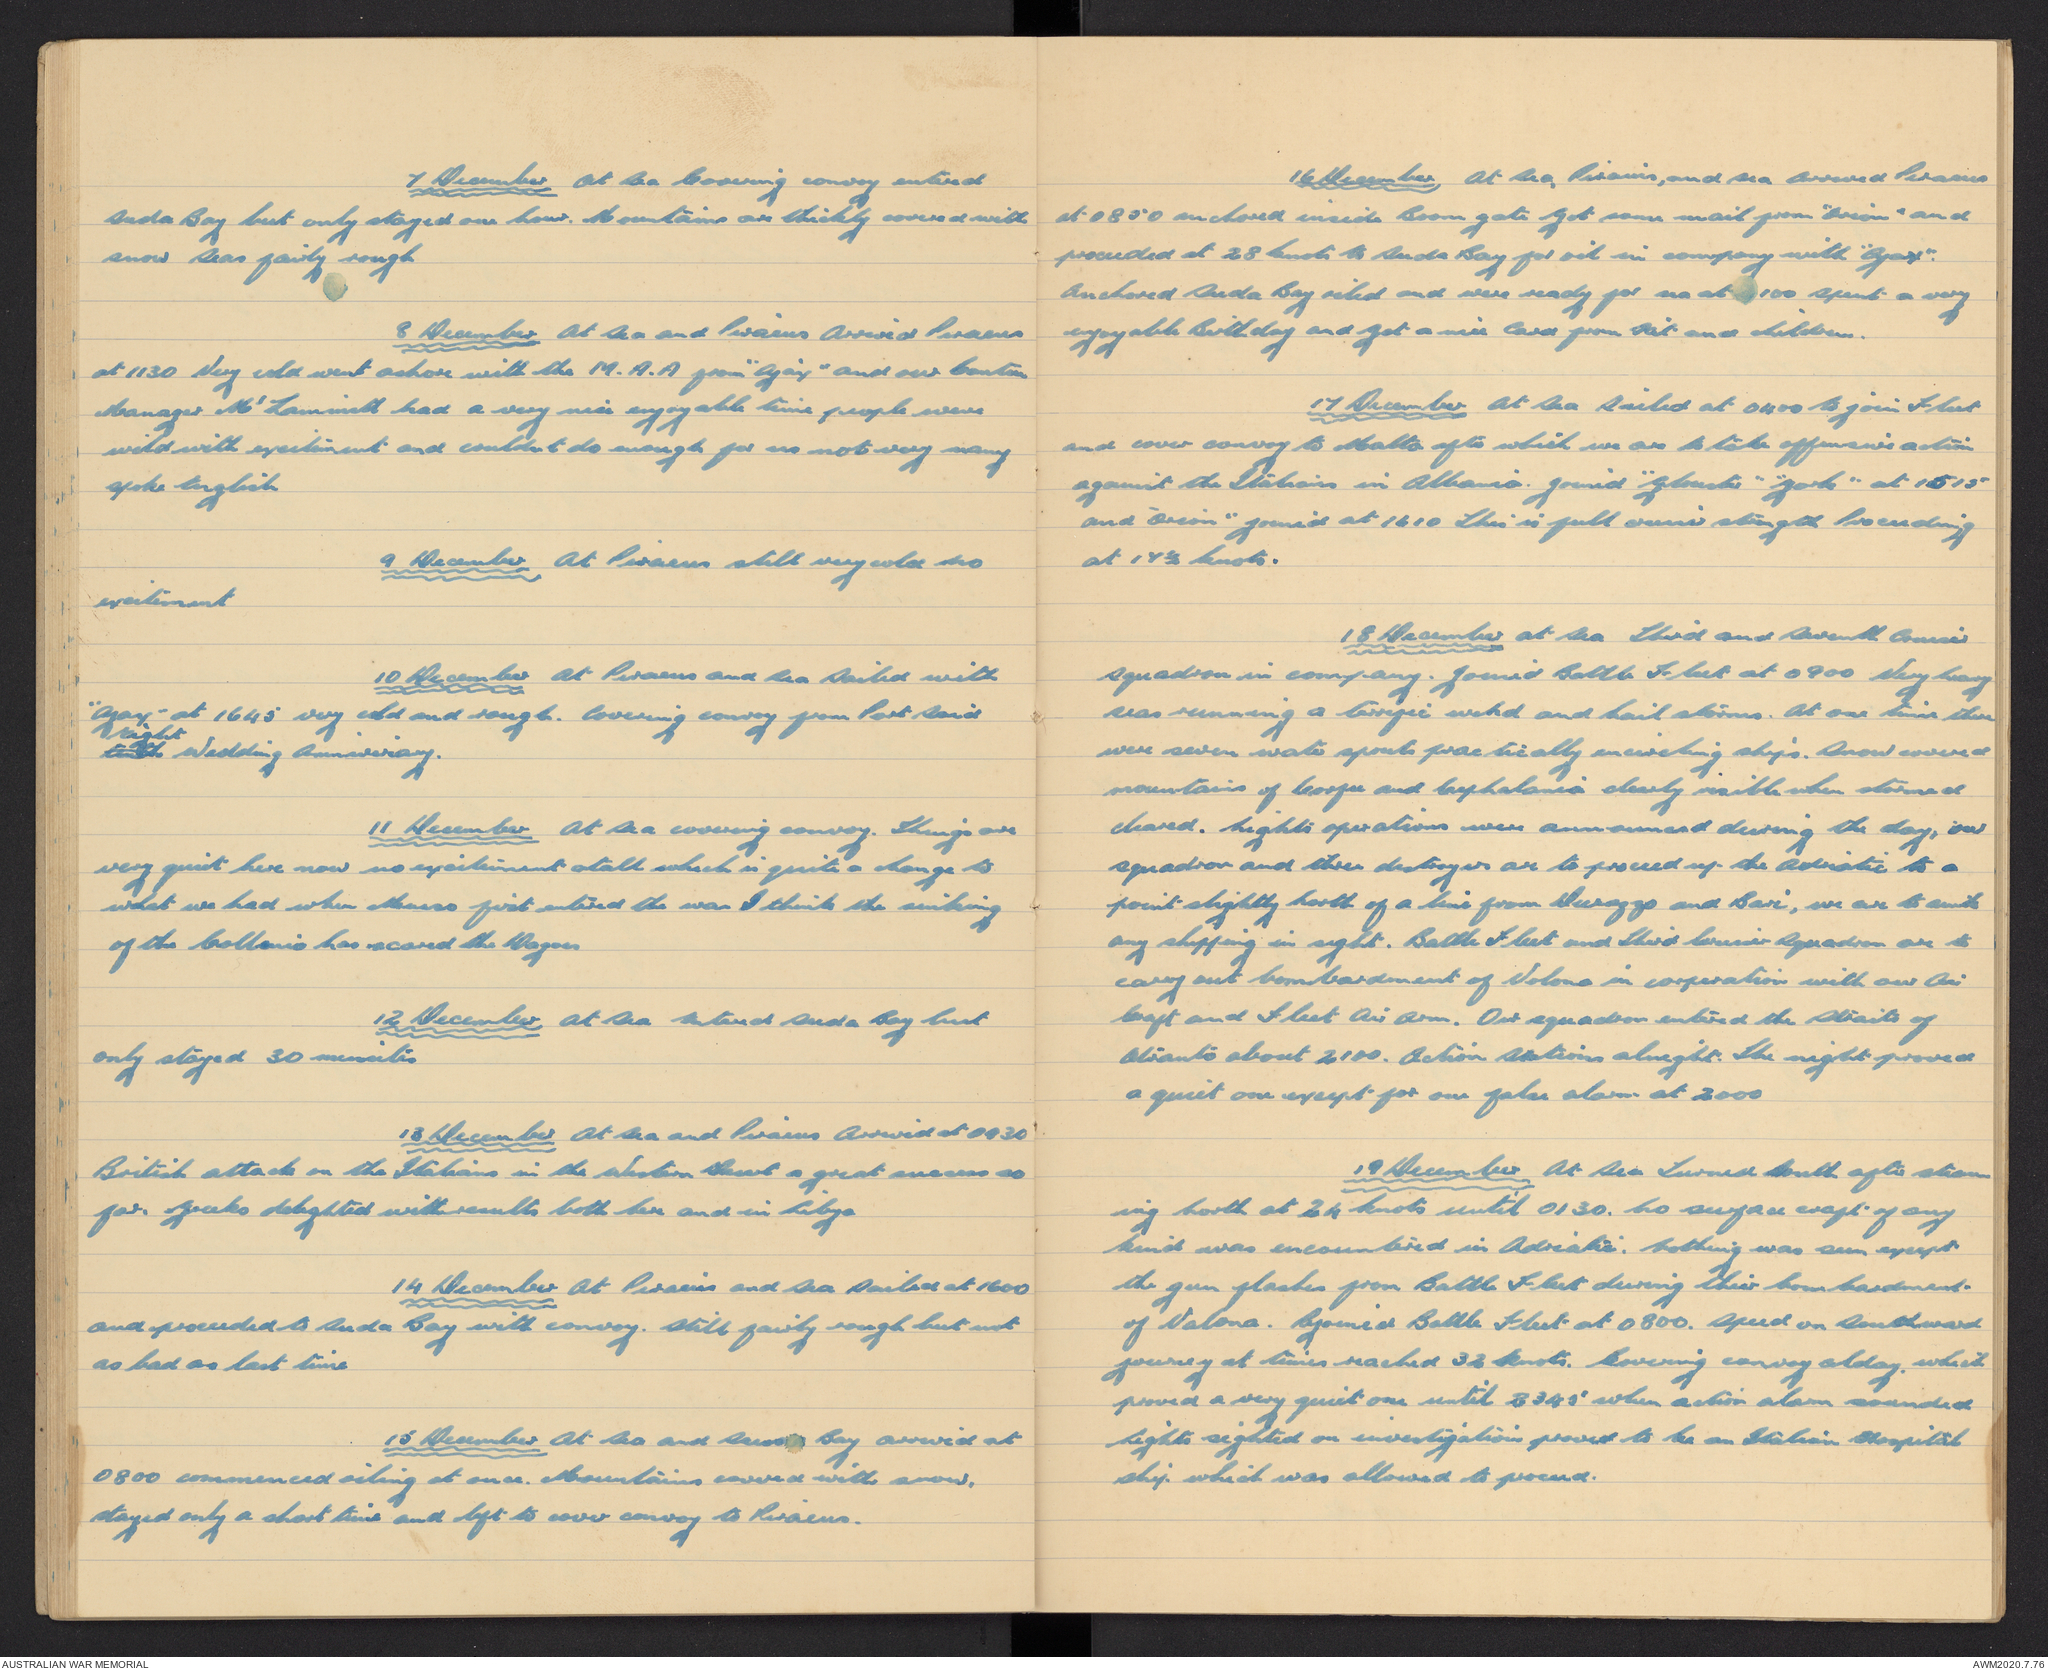 7 December At Sea Covering convoy entered
Suda Bay but only stayed one hour. Mountains are thickly covered with
snow Seas fairly rough
8 December At Sea and Piraeus Arrived Piraeus
at 1130 Very cold went ashore with the M.A.A from "Ajax" and our Canteen
Manager Mr had a very nice enjoyable time people were
wild with excitement and couldnt do enough for us not very many
spoke English
9 December At Piraeus still very cold no
excitement
10 December At Piraeus and Sea Sailed with
"Ajax" at 1645 very cold and rough. Covering convoy from Port Said
Eight
tenth Wedding Anniversary.
11 December At Sea covering convoy. Things are
very quiet here now no excitement atall which is quite a change to
what we had when first entered the war I think the sinking
of the has scared the
12 December At Sea entered Suda Bay but
only stayed 30 minutes
13 December At Sea and Piraeus Arrived at 0930
British attack on the Italians in the Western Desert a great success so
far. Greeks delighted with results both here and in Libya
14 December At Piraeus and Sea Sailed at 1600
and proceeded to Suda Bay with convoy. Still fairly rough but not
as bad as last time
15 December At Sea and Suda Bay arrived at
0800 commenced oiling at once. Mountains covered with snow,
stayed only a short time and left to cover convoy to Piraeus.
16 December, At Sea, Piraeus, and Sea Arrived Piraeus
at 0850 anchored inside Boom gate Got some mail from "Orion" and
proceeded at 28 knots to Suda Bay for oil in company with "Ajax".
Anchored Suda Bay oiled and were ready for sea at 100 Spent a very
enjoyable Birthday and Got a nice Card from and children.
17 December At Sea Sailed at 0400 to join Fleet
and cover convoy to Malta after which we are to take offensive action
against the Italians in Albania. Joined "Glouster" "York" at 1515
and "Orion" joined at 1610 This is full cruiser strength Proceeding
at knots.
18 December at Sea Third and Seventh Cruiser
Squadron in company. Joined Battle Fleet at 0900 Very heavy
seas running a terrific wind and hail storms. At one time there
were seven water spouts practically encircling ships. Snow covered
mountains of Corfu and Cephalonia clearly visible when stormed
cleared. Nights operations were announced during the day, our
squadron and three destroyers are to proceed up the Adriatic to a
point slightly North of a line from Durazzo and Bari, we are to sink
any shipping in sight. Battle Fleet and Third Cruiser Squadron are to
carry out bombardment of Valona in corperation with our Air
Craft and Fleet Air Arm. Our squadron entered the Straits of
Otranto about 2100. Action Stations alnight. The night proved
a quiet one except for one false alarm at 2000
19 December At Sea Turned South after steam
ing North at 24 knots until 0130. No surface craft of any
kind was encountered in Adriatic. Nothing was seen except
the gun flashes from Battle Fleet during their bombardment
of Valona. Rejoined Battle Fleet at 0800. Speed on Southward
journey at times reached 32 knots. Covering convoy alday, which
proved a very quiet one until 2345 when action alarm sounded
Lights sighted on investigation proved to be an Italian Hospital
ship which was allowed to proceed.
AUSTRALIAN WAR MEMORIAL
AWM2020.7.76